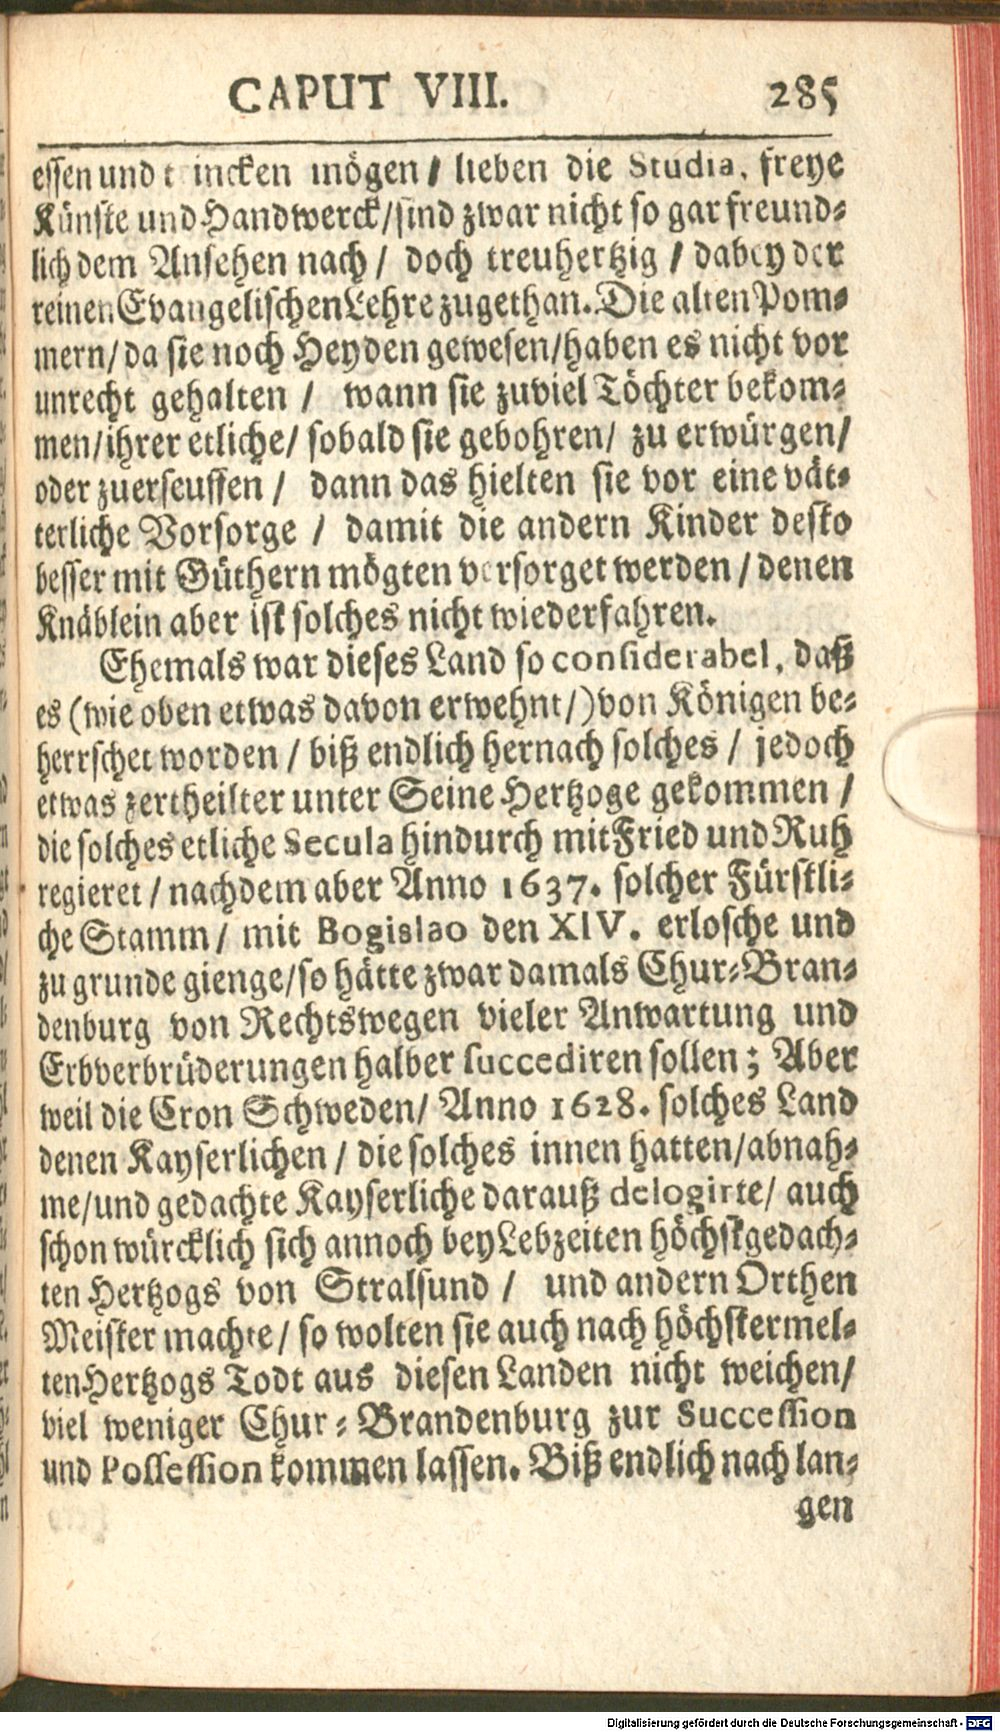 CAPUT VIII. 285
essen und trincken mögen / lieben die Studia, freye
Künste und Handwerck / sind zwar nicht so gar freund-
lich dem Ansehen nach / doch treuhertzig / dabey der
reinen Evangelischen Lehre zugethan. Die alten Pom-
mern / da sie noch Heyden gewesen / haben es nicht vor
unrecht gehalten / wann sie zuviel Töchter bekom-
men / ihrer etliche / sobald sie gebohren / zu erwürgen /
oder zuerseuffen / dann das hielten sie vor eine vät-
terliche Vorsorge / damit die andern Kinder desto
besser mit Güthern mögten versorget werden / denen
Knäblein aber ist solches nicht wiederfahren.
Ehemals war dieses Land so considerabel, daß
es (wie oben etwas davon erwehnt /) von Königen be-
herrschet worden / biß endlich hernach solches / jedoch
etwas zertheilter unter Seine Hertzoge gekommen /
die solches etliche Secula hindurch mit Fried und Ruh
regieret / nachdem aber Anno 1637. solcher Fürstli-
che Stamm / mit Bogislao den XIV. erlosche und
zu grunde gienge / so hätte zwar damals Chur-Bran-
denburg von Rechtswegen vieler Anwartung und
Erbverbrüderungen halber succediren sollen; Aber
weil die Cron Schweden / Anno 1628. solches Land
denen Kayserlichen / die solches innen hatten / abnah-
me / und gedachte Kayserliche darauß delogirte / auch
schon würcklich sich annoch bey Lebzeiten höchstgedach-
ten Hertzogs von Stralsund / und andern Orthen
Meister machte / so wolten sie auch nach höchstermel-
ten Hertzogs Todt aus diesen Landen nicht weichen /
viel weniger Chur-Brandenburg zur Succession
und Possession kommen lassen. Biß endlich nach lan-
gen
Digitalisierung gefördert durch die Deutsche Forschungsgemeinschaft - DFG